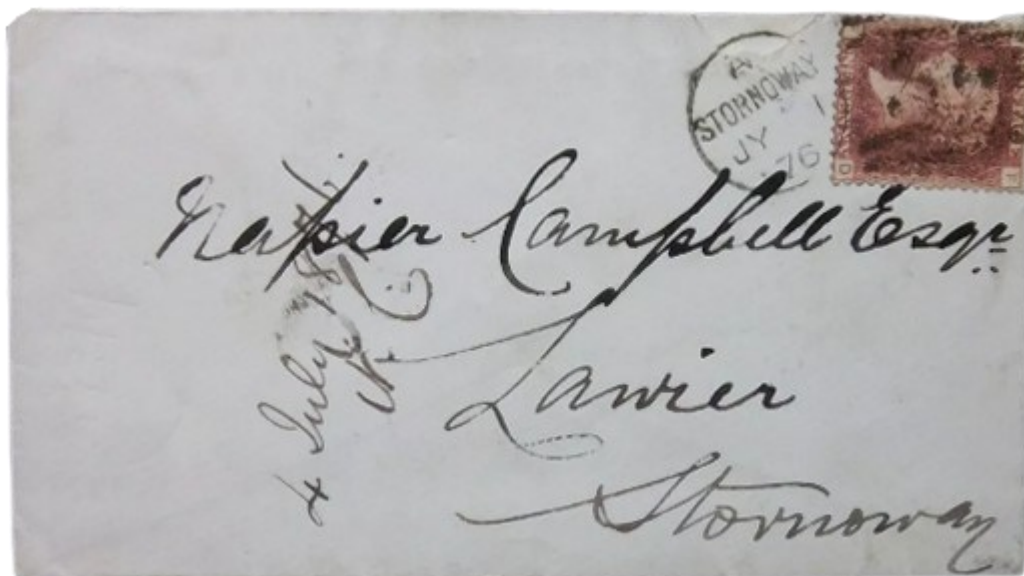 A
STORNOWAY
JY 1
76
Napier Campbell Esqr
Lawier
Stornoway
4 July